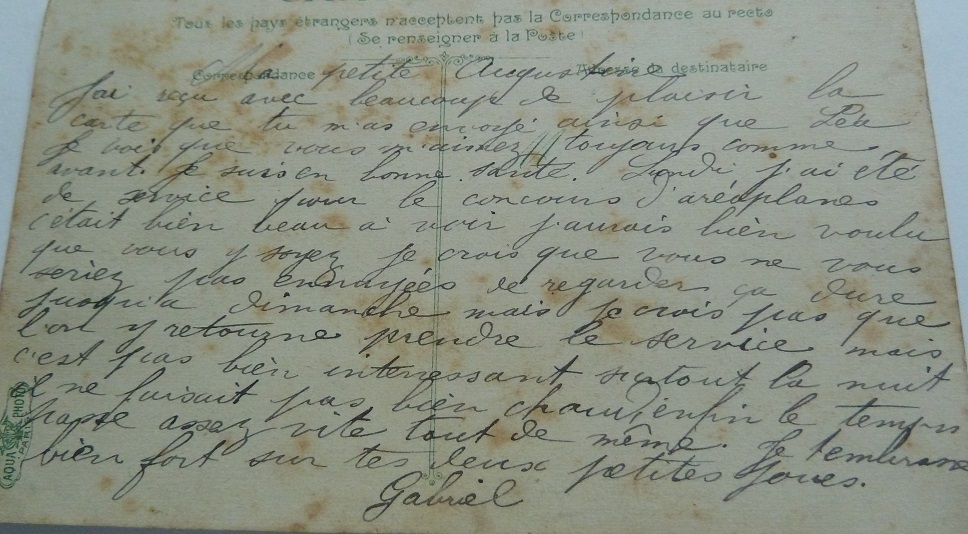 Tous les pays étrangers n'acceptent pas la Correspondance au recto
(Se renseigner à la Poste)
Correspondance Adresse du destinataire
Ma petite Augustine
J'ai reçu avec beaucoup de plaisir la
carte que tu m'as envoyé ainsi que Léa
je vois que vous m'aimez toujours comme
avant. Je suis en bonne santé. Lundi j'ai été
de service pour le concours d'aréoplanes
c'était bien beau à voir j'aurais bien voulu
que vous y soyez je crois que vous ne vous
seriez pas ennuyées de regarder ça dure
jusqu'a dimanche mais je crois pas que
l'on y retourne prendre le service mais
c'est pas bien interessant surtout la nuit
il ne faisait pas bien chaud enfin le temps
passe assez vite tout de même. Je t'embrasse
bien fort sur tes deux petites joues.
Gabriel
AQUA PHOTO
PARIS